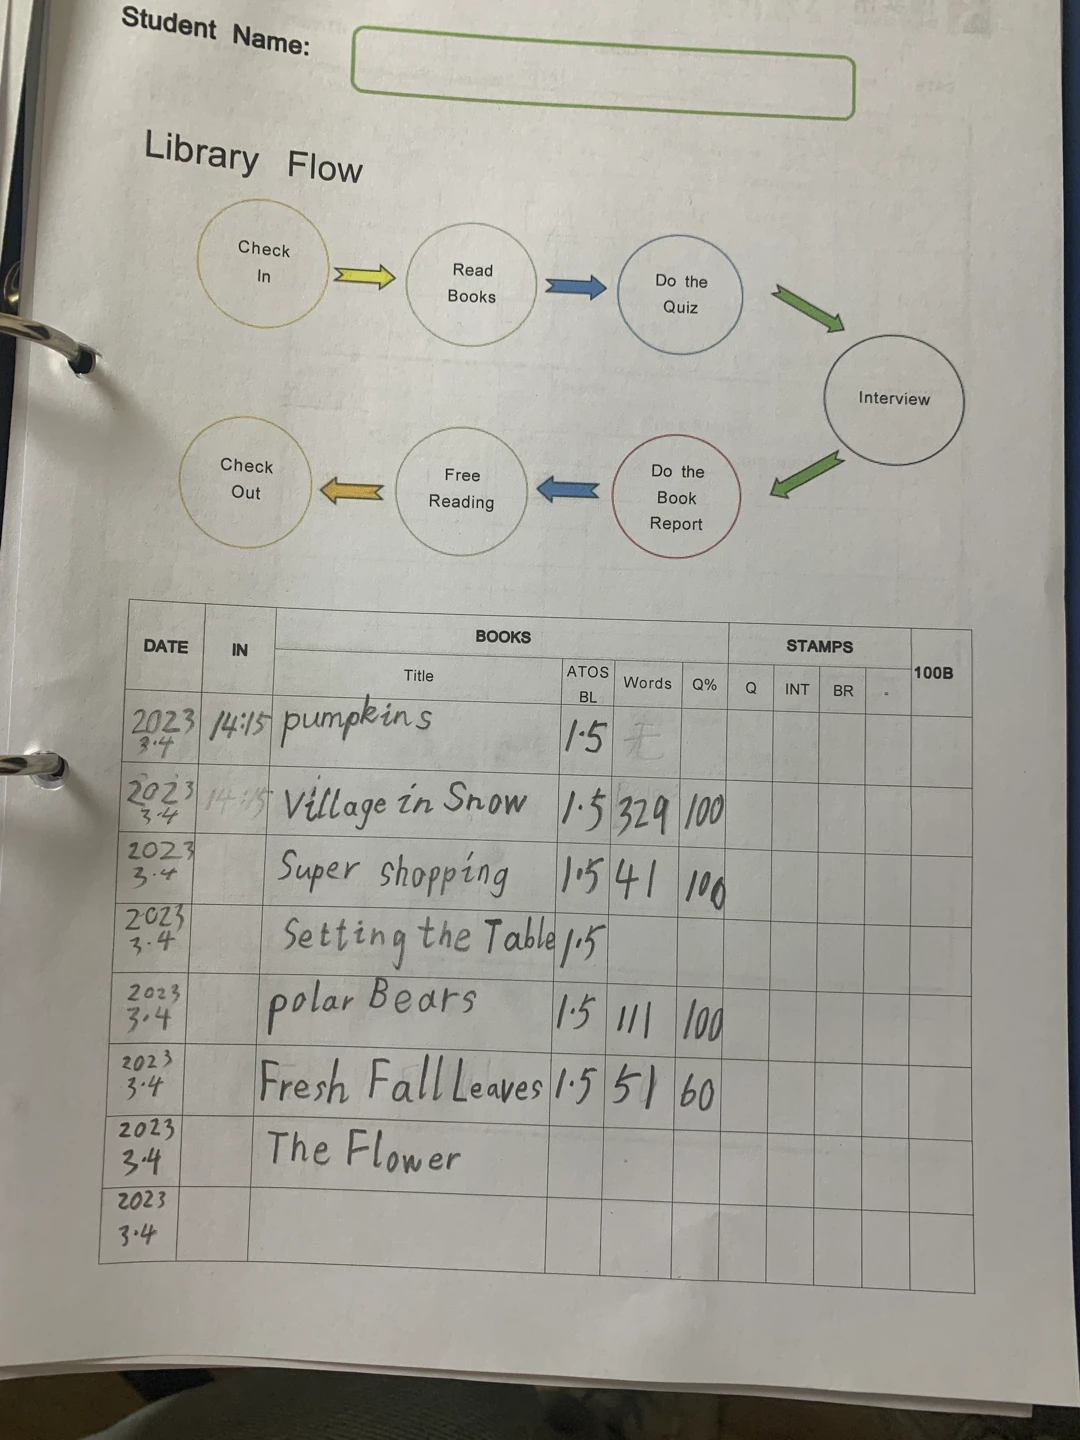 Student Name:
Library Flow
Check
In
Read
Books
Do the
Quiz
Interview
Check
Out
Free
Reading
Do the
Book
Report
DATE IN BOOKS STAMPS 100B
Title ATOS BL Words Q% Q INT BR
2023 3.4 14:15 pumpkins 1.5 无
2023 3.4 14:15 Village in Snow 1.5 329 100
2023 3.4 Super shopping 1.5 41 100
2023 3.4 Setting the Table 1.5
2023 3.4 polar Bears 1.5 111 100
2023 3.4 Fresh Fall Leaves 1.5 51 60
2023 3.4 The Flower
2023 3.4